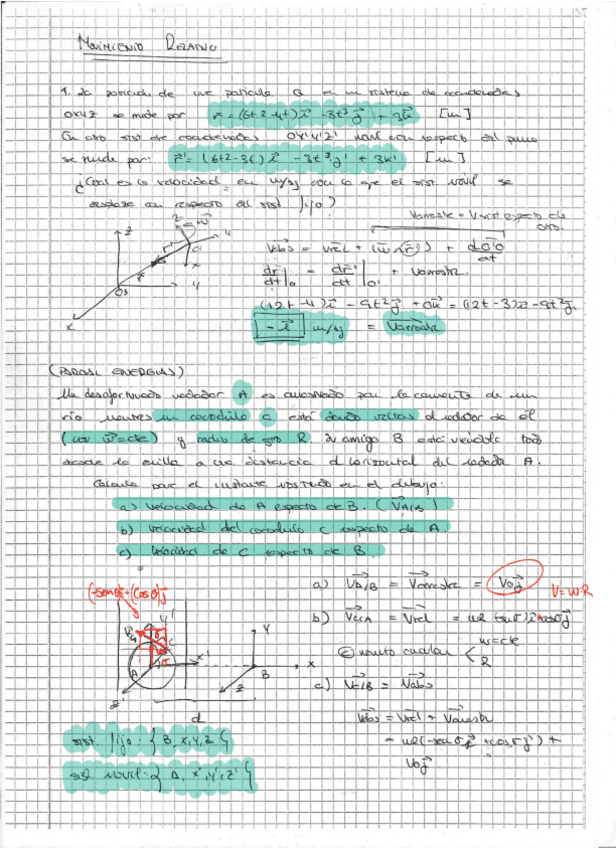 MOVIMIENTO RELATIVO
1. La posición de una partícula Q en un sistema de coordenadas
OXYZ se mide por r⃗ = (6t2-4t)i⃗ - 3t³j⃗ + 3k⃗ [m]
En otro sist de coordenadas O'X'Y'Z' móvil con respecto del
se mide por: r⃗' = (6t2-3t)i⃗ - 3t³j⃗' + 3k' [m]
¿Cuál es la velocidad en m/sg con la que el sist. móvil se
desplaza con respecto al sist fijo?
Z
Y
X
V⃗abs = V⃗rel + (w⃗ ∧ r⃗') + dO⃗O'/dt
dr⃗/dt|o = dr⃗'/dt|o' + V⃗arrastre.
(12t-4)i⃗ - 9t²j⃗ + 0k⃗ = (12t-3)i⃗ - 9t²j⃗.
-i⃗ m/sg = V⃗arrastre
(PARCIAL ENERGIAS)
Un desafortunado nadador A es arrastrado por la corriente de un
río mientras un cocodrilo C está dando vueltas alrededor de él
(con w⃗=cte) y radio de giro R. Su amigo B está
desde la orilla a una distancia d horizontal del nadador A.
Calcula para el instante mostrado en el dibujo:
a) Velocidad de A respecto de B. (V⃗A/B)
b) Velocidad del cocodrilo C respecto de A.
c) Velocidad de C respecto de B.
(-senθ)i + (cosθ)j
A
B
X
Y
Z
x'
y'
z'
d
a) V⃗A/B = V⃗arrastre = V₀j⃗
V=w·R
b) V⃗C/A = V⃗rel = wR
w=cte
R
c) V⃗C/B = V⃗abs
V⃗abs = V⃗rel + V⃗arrastre
= wR(-senθi⃗ + cosθj⃗) +
V₀j⃗
sist. fijo: { B, x, y, z }
sist móvil: { A, x', y', z' }